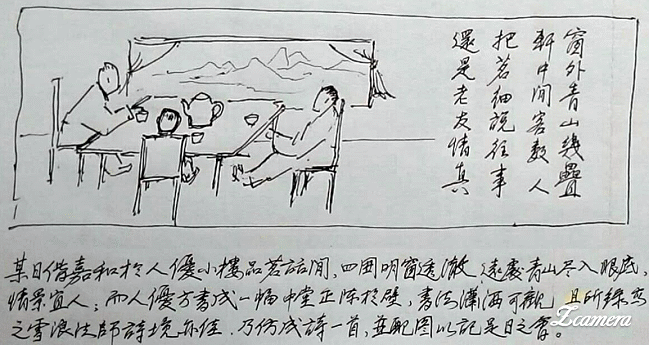 窗外青山幾疊
軒中閒客數人
把茗細說往事
還是老友情真
某日偕嘉和於人優小樓品茗話閒,四囲明窗透澈,遠處青山尽入眼底,
情景宜人;而人優方書成一幅中堂正陈於壁,書法潇洒可觀,且所錄寫
之雪浪法師詩境亦佳,乃仿成詩一首,並配图以記是日之會。
Zcamera